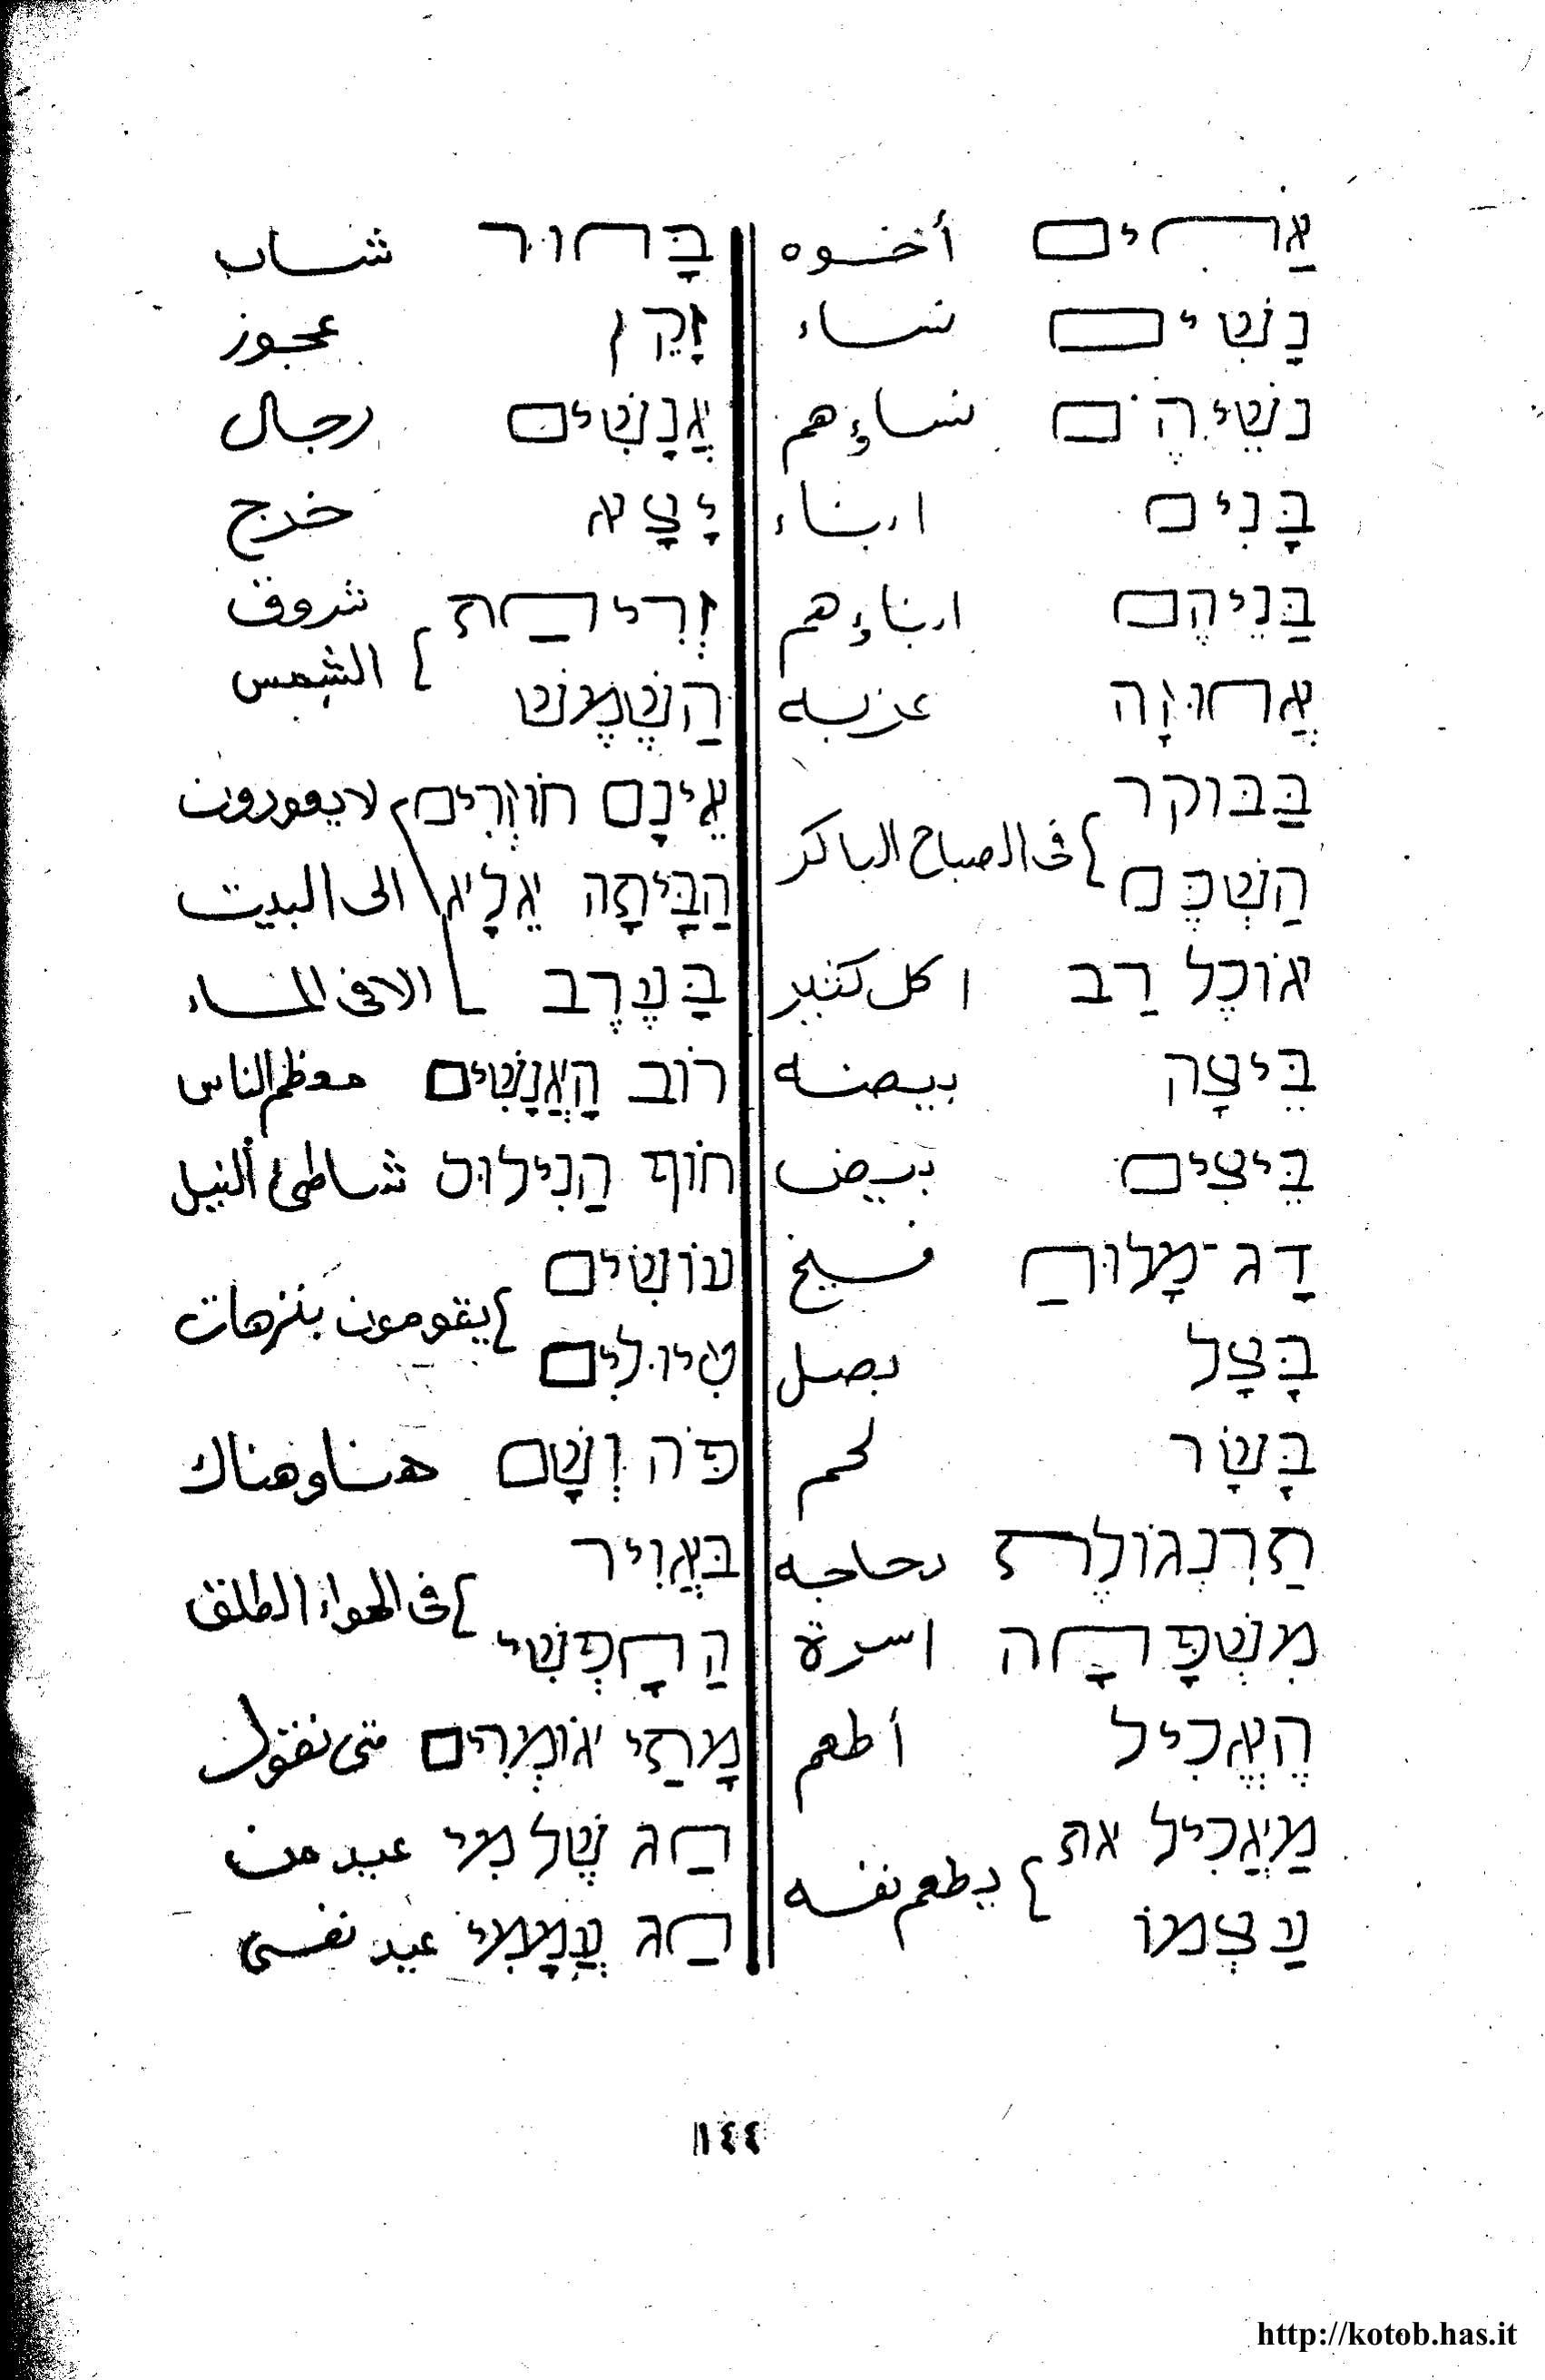 אַחִים أخوه
נָשִׁים نساء
נְשֵׁיהֶם نساؤهم
בָּנִים ابناء
בַּנֵיהֶם ابناؤهم
אֲחוּזָה عزبه
בַּבּוֹקר
הַשְׁכֶּם } فى الصباح الباكر
אוֹכֶל רַב اكل كثير
בֵּיצָה بيضه
בֵּיצִים بيض
דָג־מָלוּחַ فسيخ
בָּצָל بصل
בָּשָׂר لحم
תַרְנְגוֹלֶת دجاجه
מִשְׁפָּחָה اسرة
הֶאֱכִיל أطعم
מַאֲכִיל את
עַצְמוֹ } يطعم نفسه
בָּחוּר شاب
זָקֵן عجوز
אֲנָשִׁים رجال
יָצָא خرج
זְרִיחַת
הַשֶׁמֶשׁ } شروق الشمس
אֵינָם חוֹזְרִים لايعودون
הַבָּיתָה אֵלָא الى البيت
בָּעֶרֶב الا فى المساء
רוֹב הָאֲנָשִׁים معظم الناس
חוֹף הַנִילוּס شاطئ النيل
עוֹשִׂים
טִיוּלִים } يقومون بنزهات
פֹּה וְשָׁם هنا وهناك
בּאֲוִיר
הַחָפְשִׁי } فى الهواء الطلق
מָתַי אוֹמְרִים متى نقول
חַג שֶׁל מִי عيد من
חַג עֲצְמִי عيد نفسى
١٤٤
http://kotob.has.it